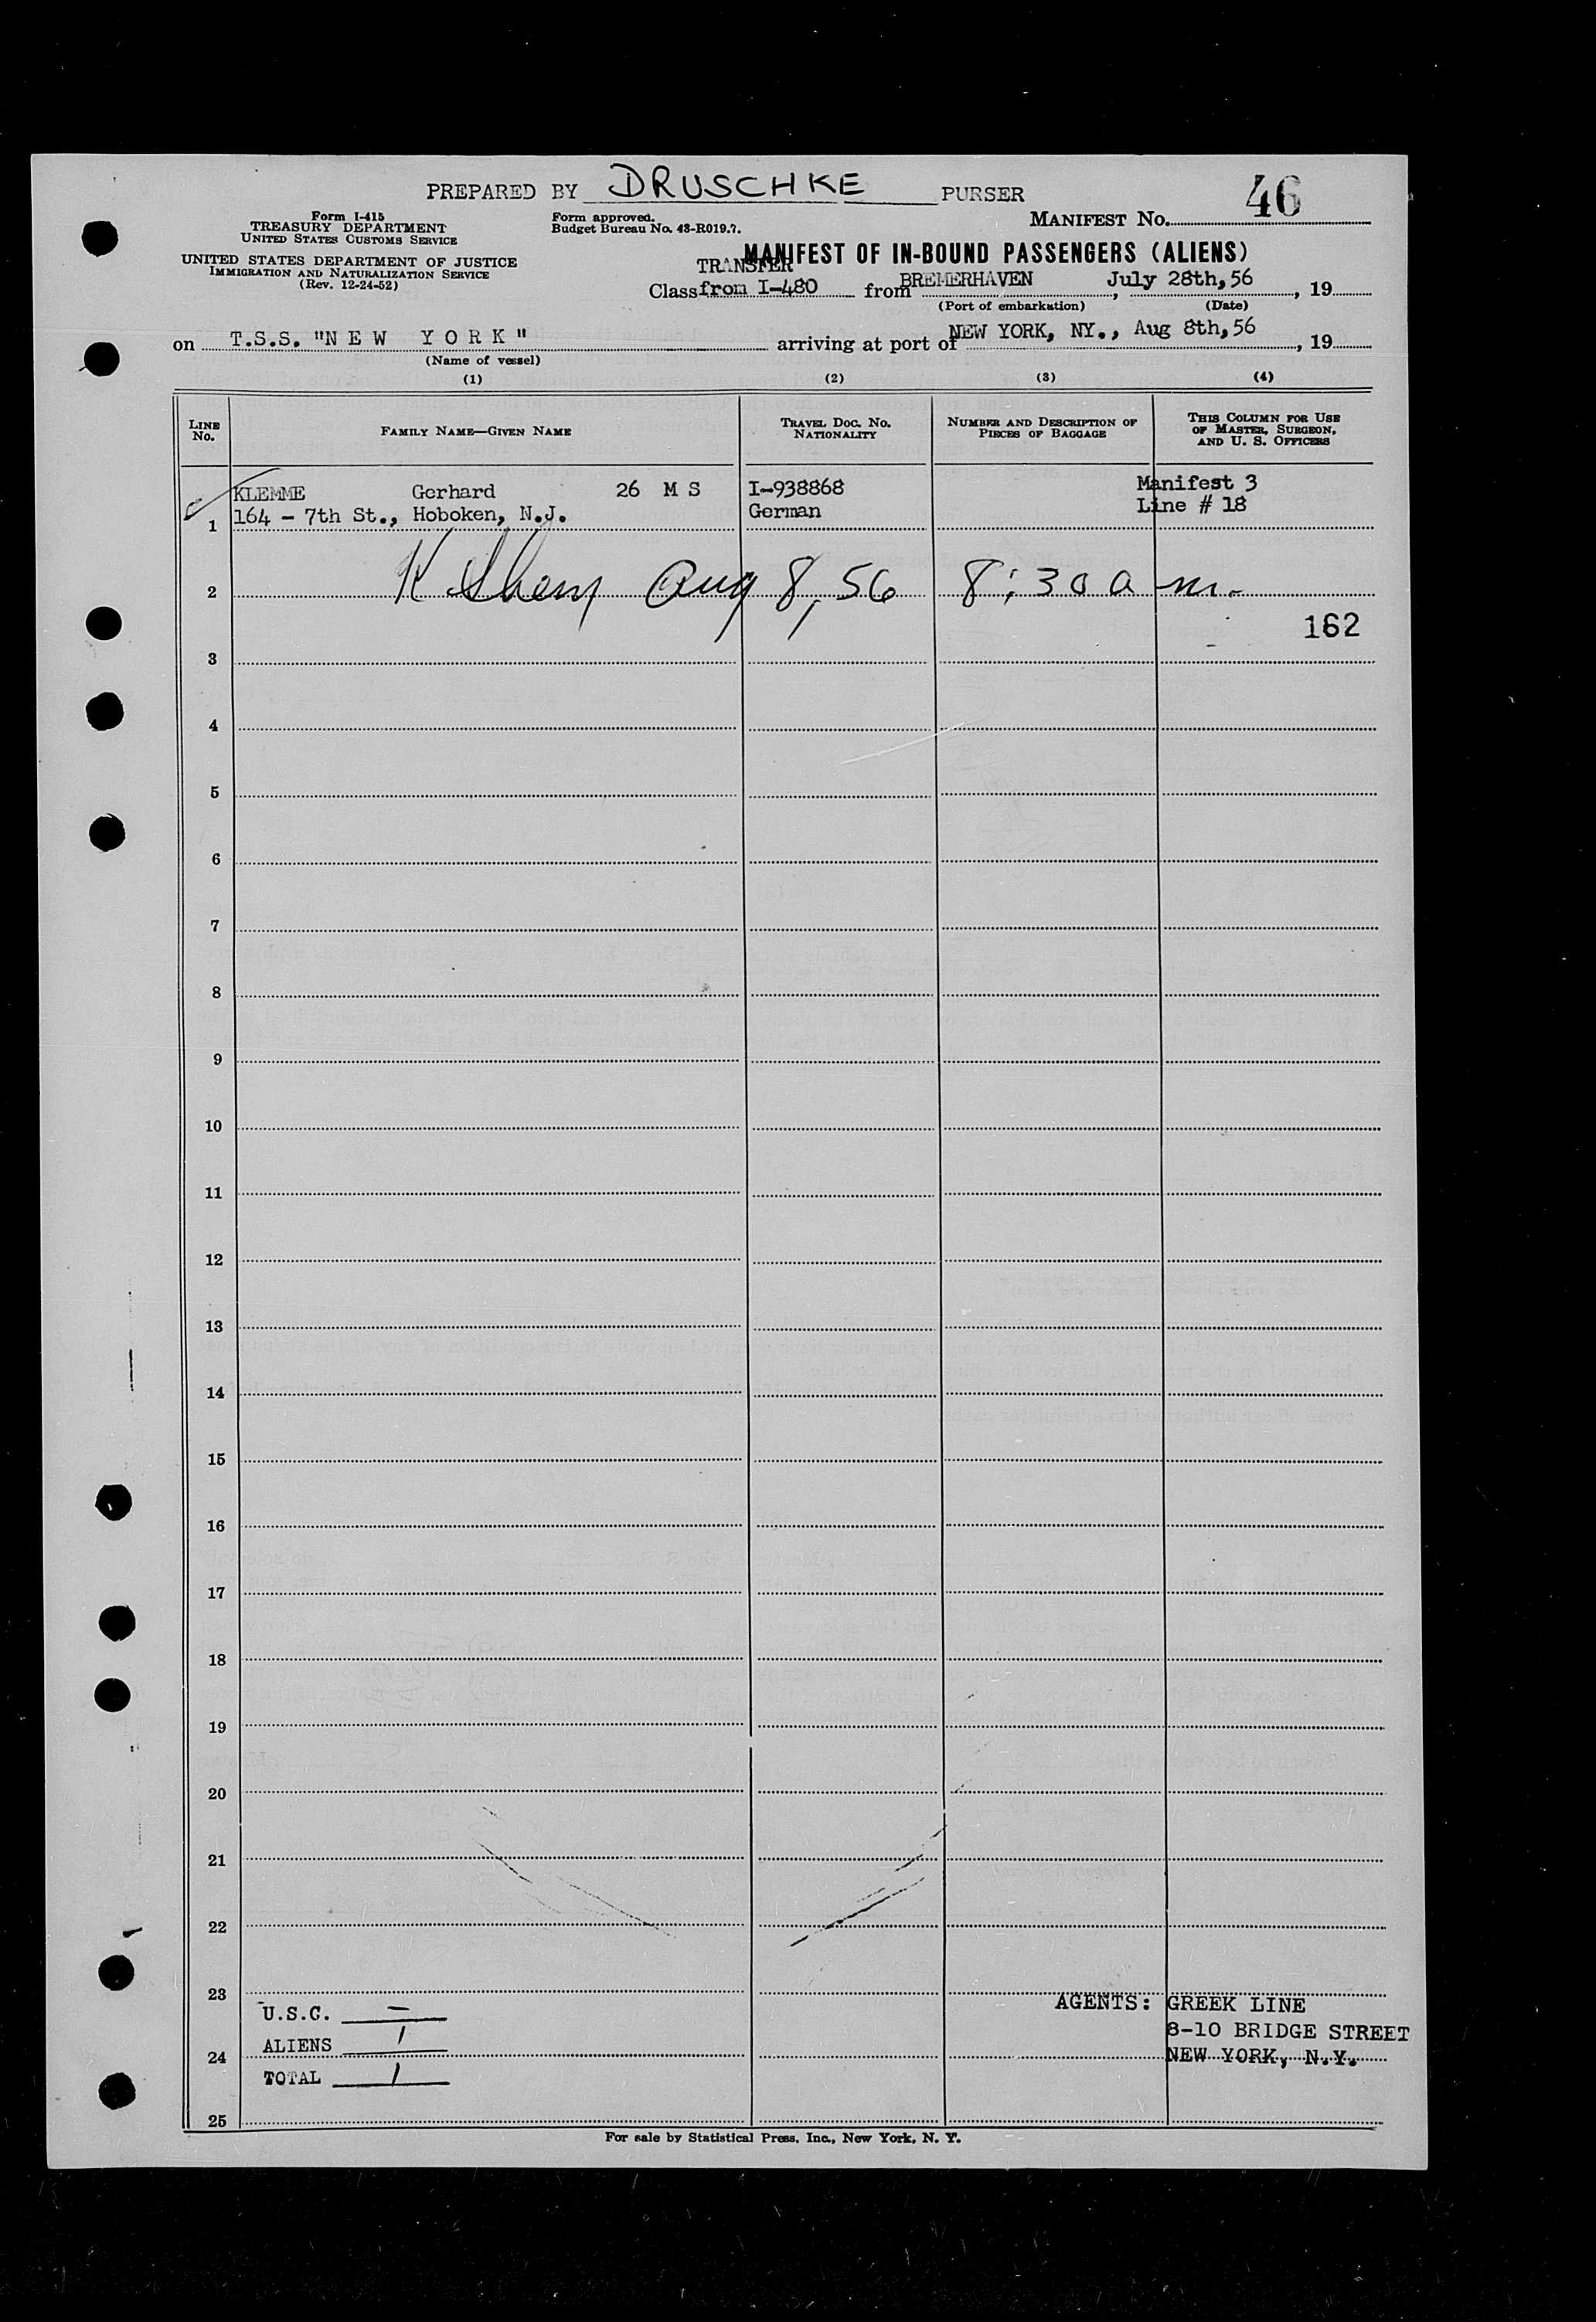 PREPARED BY DRUSCHKE PURSER
46
Form I-415
TREASURY DEPARTMENT
UNITED STATES CUSTOMS SERVICE
Form approved.
Budget Bureau No. 43-R019.7.
MANIFEST No.
UNITED STATES DEPARTMENT OF JUSTICE
IMMIGRATION AND NATURALIZATION SERVICE
(Rev. 12-24-52)
MANIFEST OF IN-BOUND PASSENGERS (ALIENS)
TRANSFER
Class from I-480 from BREMERHAVEN, July 28th, 56, 19
(Port of embarkation) (Date)
on T.S.S. "NEW YORK" arriving at port of NEW YORK, NY., Aug 8th, 56, 19
(Name of vessel)
(1) (2) (3) (4)
LINE No.
FAMILY NAME—GIVEN NAME
TRAVEL DOC. NO. NATIONALITY
NUMBER AND DESCRIPTION OF PIECES OF BAGGAGE
THIS COLUMN FOR USE OF MASTER, SURGEON, AND U. S. OFFICERS
KLEMME Gerhard 26 M S I-938868 Manifest 3
1 164 - 7th St., Hoboken, N.J. German Line # 18
2 Aug 8, 56 8:30 a m.
162
3
4
5
6
7
8
9
10
11
12
13
14
15
16
17
18
19
20
21
22
23
U.S.C. — AGENTS: GREEK LINE
ALIENS 1 8-10 BRIDGE STREET
24 NEW YORK, N.Y.
TOTAL 1
25
For sale by Statistical Press, Inc., New York, N. Y.